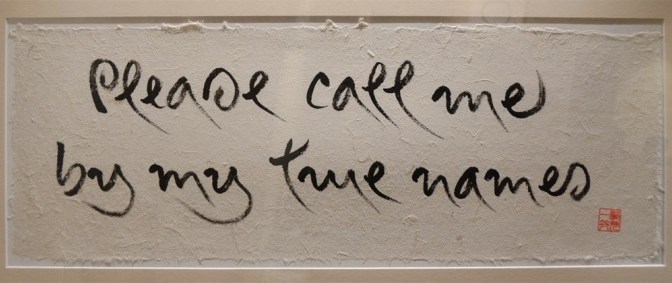 Please call me
by my true names